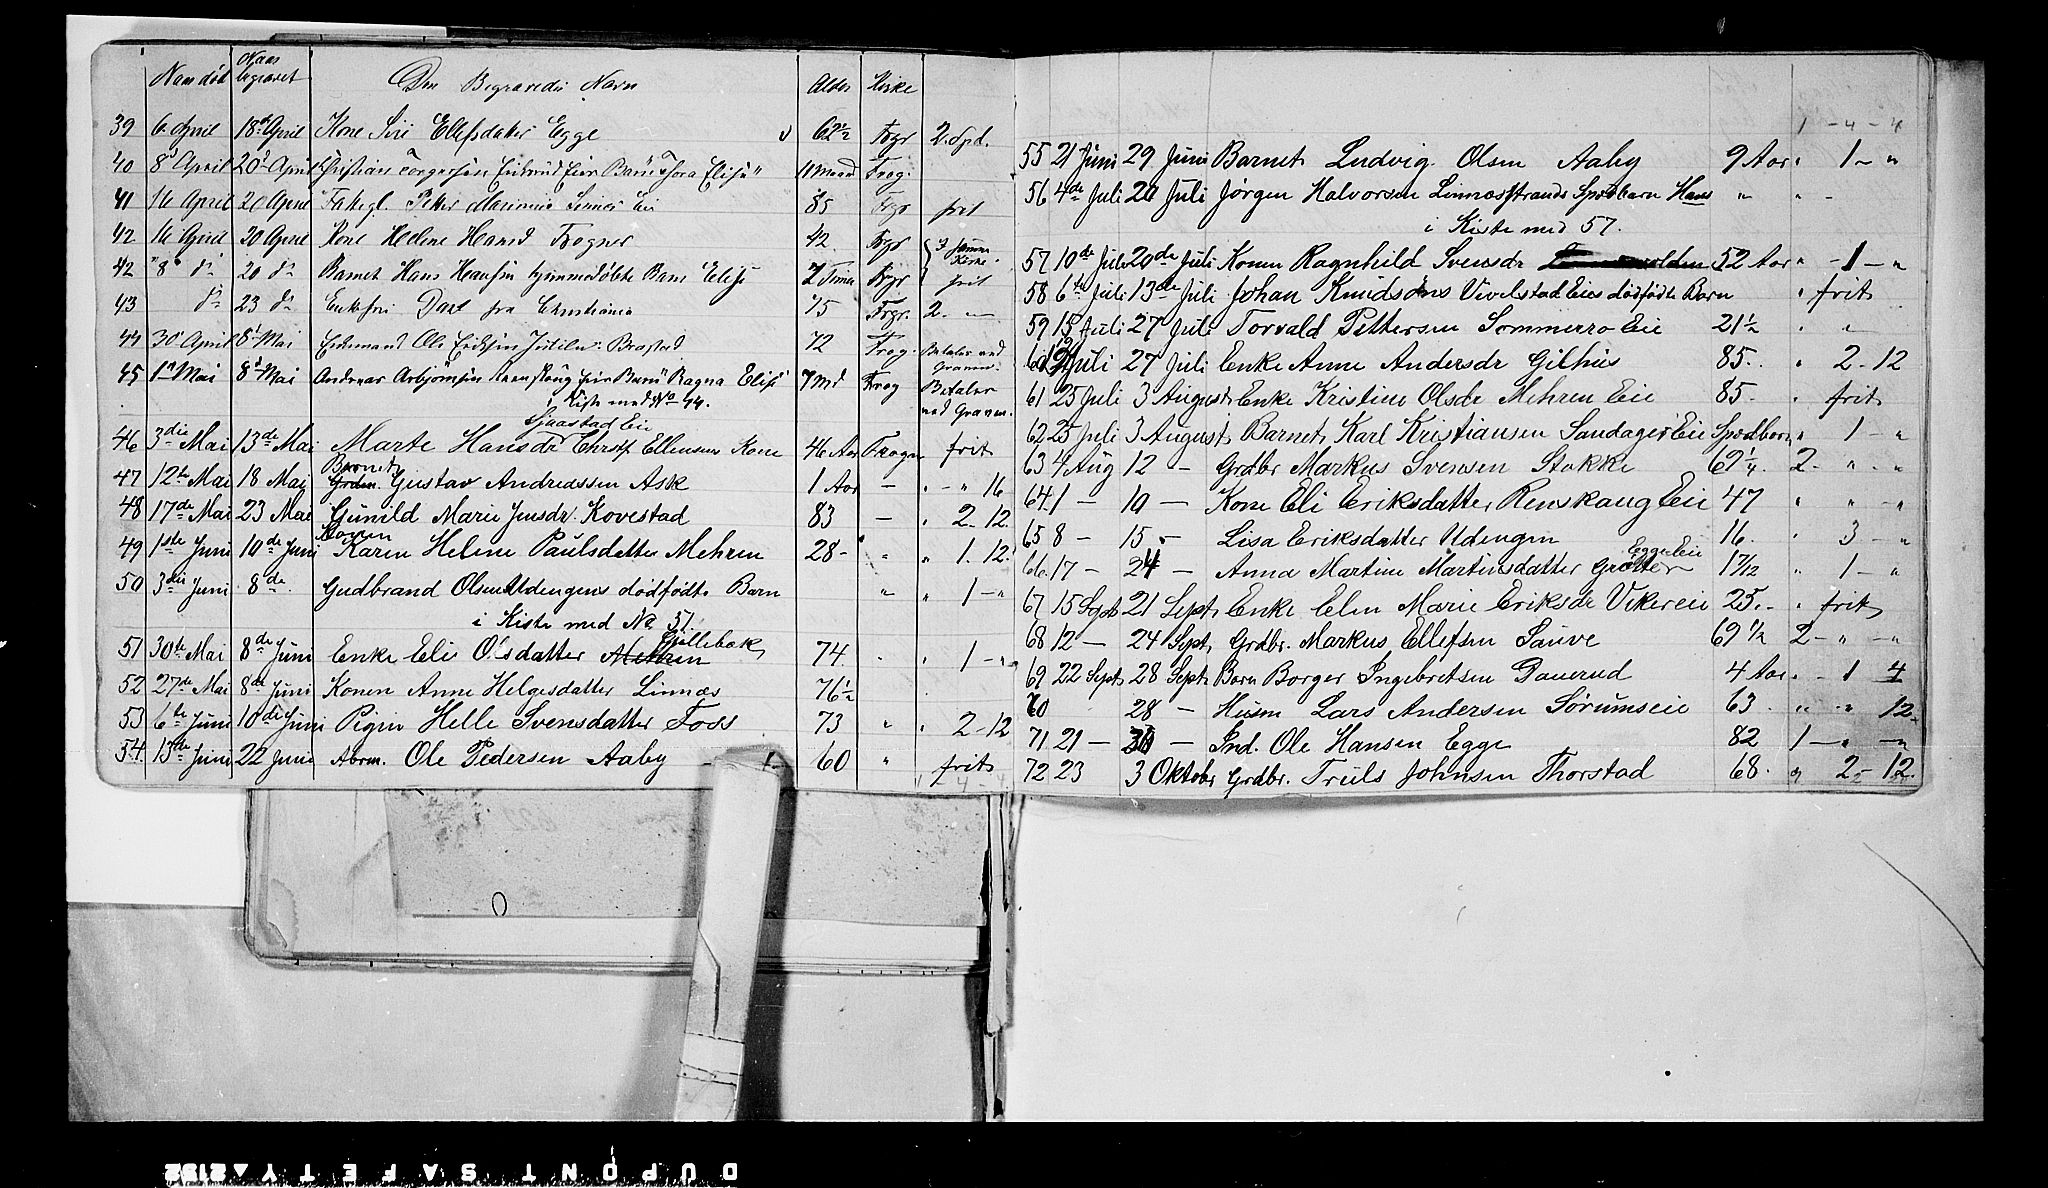 Naar død Naar begravet Den Begravedes Navn Alder Kirke
39 6 April 18de April Kone Siri Elefsdatter Egge 62 1/2 Frgr 2 Spd.
40 8de April 20de April Christian Torgersen Barn Thora Elise 11 Maand Frog.
41 16 April 20 April Peter Eie 85 Frgr frit
42 16 April 20 April Kone Helene Hansd Frogner 42. Frgr
42 "8" do 20 do Barnet Hans Hansen hjemmedøbte Barn 2 Timer Frgr frit
43 do 23 do fra Christiania 75 Frgr. 2. —
44 30 April 8de Mai Ole Eriksen Bragstad 72 Frog. Betales ved Graven.
45 1ste Mai 8de Mai Andreas Arbjørnsen Barn Ragna Elise 7 Md Frog Betales ved Graven.
i Kiste med No 44.
Sjaastad Eie
46 3die Mai 13de Mai Marte Hansdr Christf Ellensens Kone 46 Aar Frogn frit
Barnet
47 12te Mai 18 Mai Gustav Andreassen Ask 1 Aar — " - " 16
48 17de Mai 23 Mai Gunild Marie Jensdr. Kovestad 83 — " 2-12.
Konen
49 1ste Juni 10de Juni Karen Helene Paulsdatter Mehren 28- " " 1. 12.
50 3die Juni 8de Gudbrand Olsen Udengens dødfødte Barn " " 1 - "
i Kiste med No 51.
Gjellebæk
51 30te Mai 8de Juni Enke Eli Olsdatter Mehren 74. " " 1 - "
52 27de Mai 8de Juni Konen Anne Helgesdatter Linnæs 76 1/2
53 6te Juni 10de Juni Pigen Helle Svensdatter Foss 73 " " 2-12
54. 15de Juni 22 Juni Abrm. Ole Pedersen Aaby 60 " frit
1 - 4 - 4
1 - 4 - 4
55 21 Juni 29 Juni Barnet Ludvig Olsen Aaby 9 Aar " 1 - "
56 4de Juli 20 Juli Jørgen Halvorsen Linnæsstrands Spædbarn Hans " " -
i Kiste med 57.
57 10de Juli 20de Juli Konen Ragnhild Svensdr 52 Aar " - 1 - "
58 6te Juli 13de Juli Johan Knudsens Vivelstad Eies dødfødte Barn " frit
59 15 Juli 27 Juli Torvald Pettersen Sommerro Eie 21 1/2 " "
60 Juli 27 Juli Enke Anne Andersdr Gilhus 85. " 2-12
61 25 Juli 3 August Enke Kristine Olsdr Mehren Eie 85. " frit
62 25 Juli 3 August Barnet Karl Kristiansen Sandager Eie Spædbarn " 1 - "
63 4 Aug 12 - Grdbr Markus Svensen Stokke 69 1/4. 2 - " - "
64. 1 - 10 - Kone Eli Eriksdatter Renskaug Eie 47 " " - "
65 8 - 15 - Lisa Eriksdatter Udengen 16. " 3 - "
Egge Eie
66. 17 - 24 - Anna Martine Martinsdatter Grøtter 1 7/12 " 1 - "
67 15 Sept 21 Sept Enke Elen Marie Eriksdr Vikereie 25. - " frit
68 12 — 24 Sept Grdbr. Markus Ellefsen Sauve 69 1/2 2 - " - "
69 22 Sept 28 Sept Barn Borger Ingebretsen Dauerud 4 Aar " - 1 4
70 28 - Husm Lars Andersen Sørumseie 63. " " 12-
71 21 — 30 - Ind. Ole Hansen Egge 82 1 - " - "
72 23 3 Oktobr Grdbr. Truls Johnsen Thorstad 68. " 2 - 12.
DUPONT SAFETY